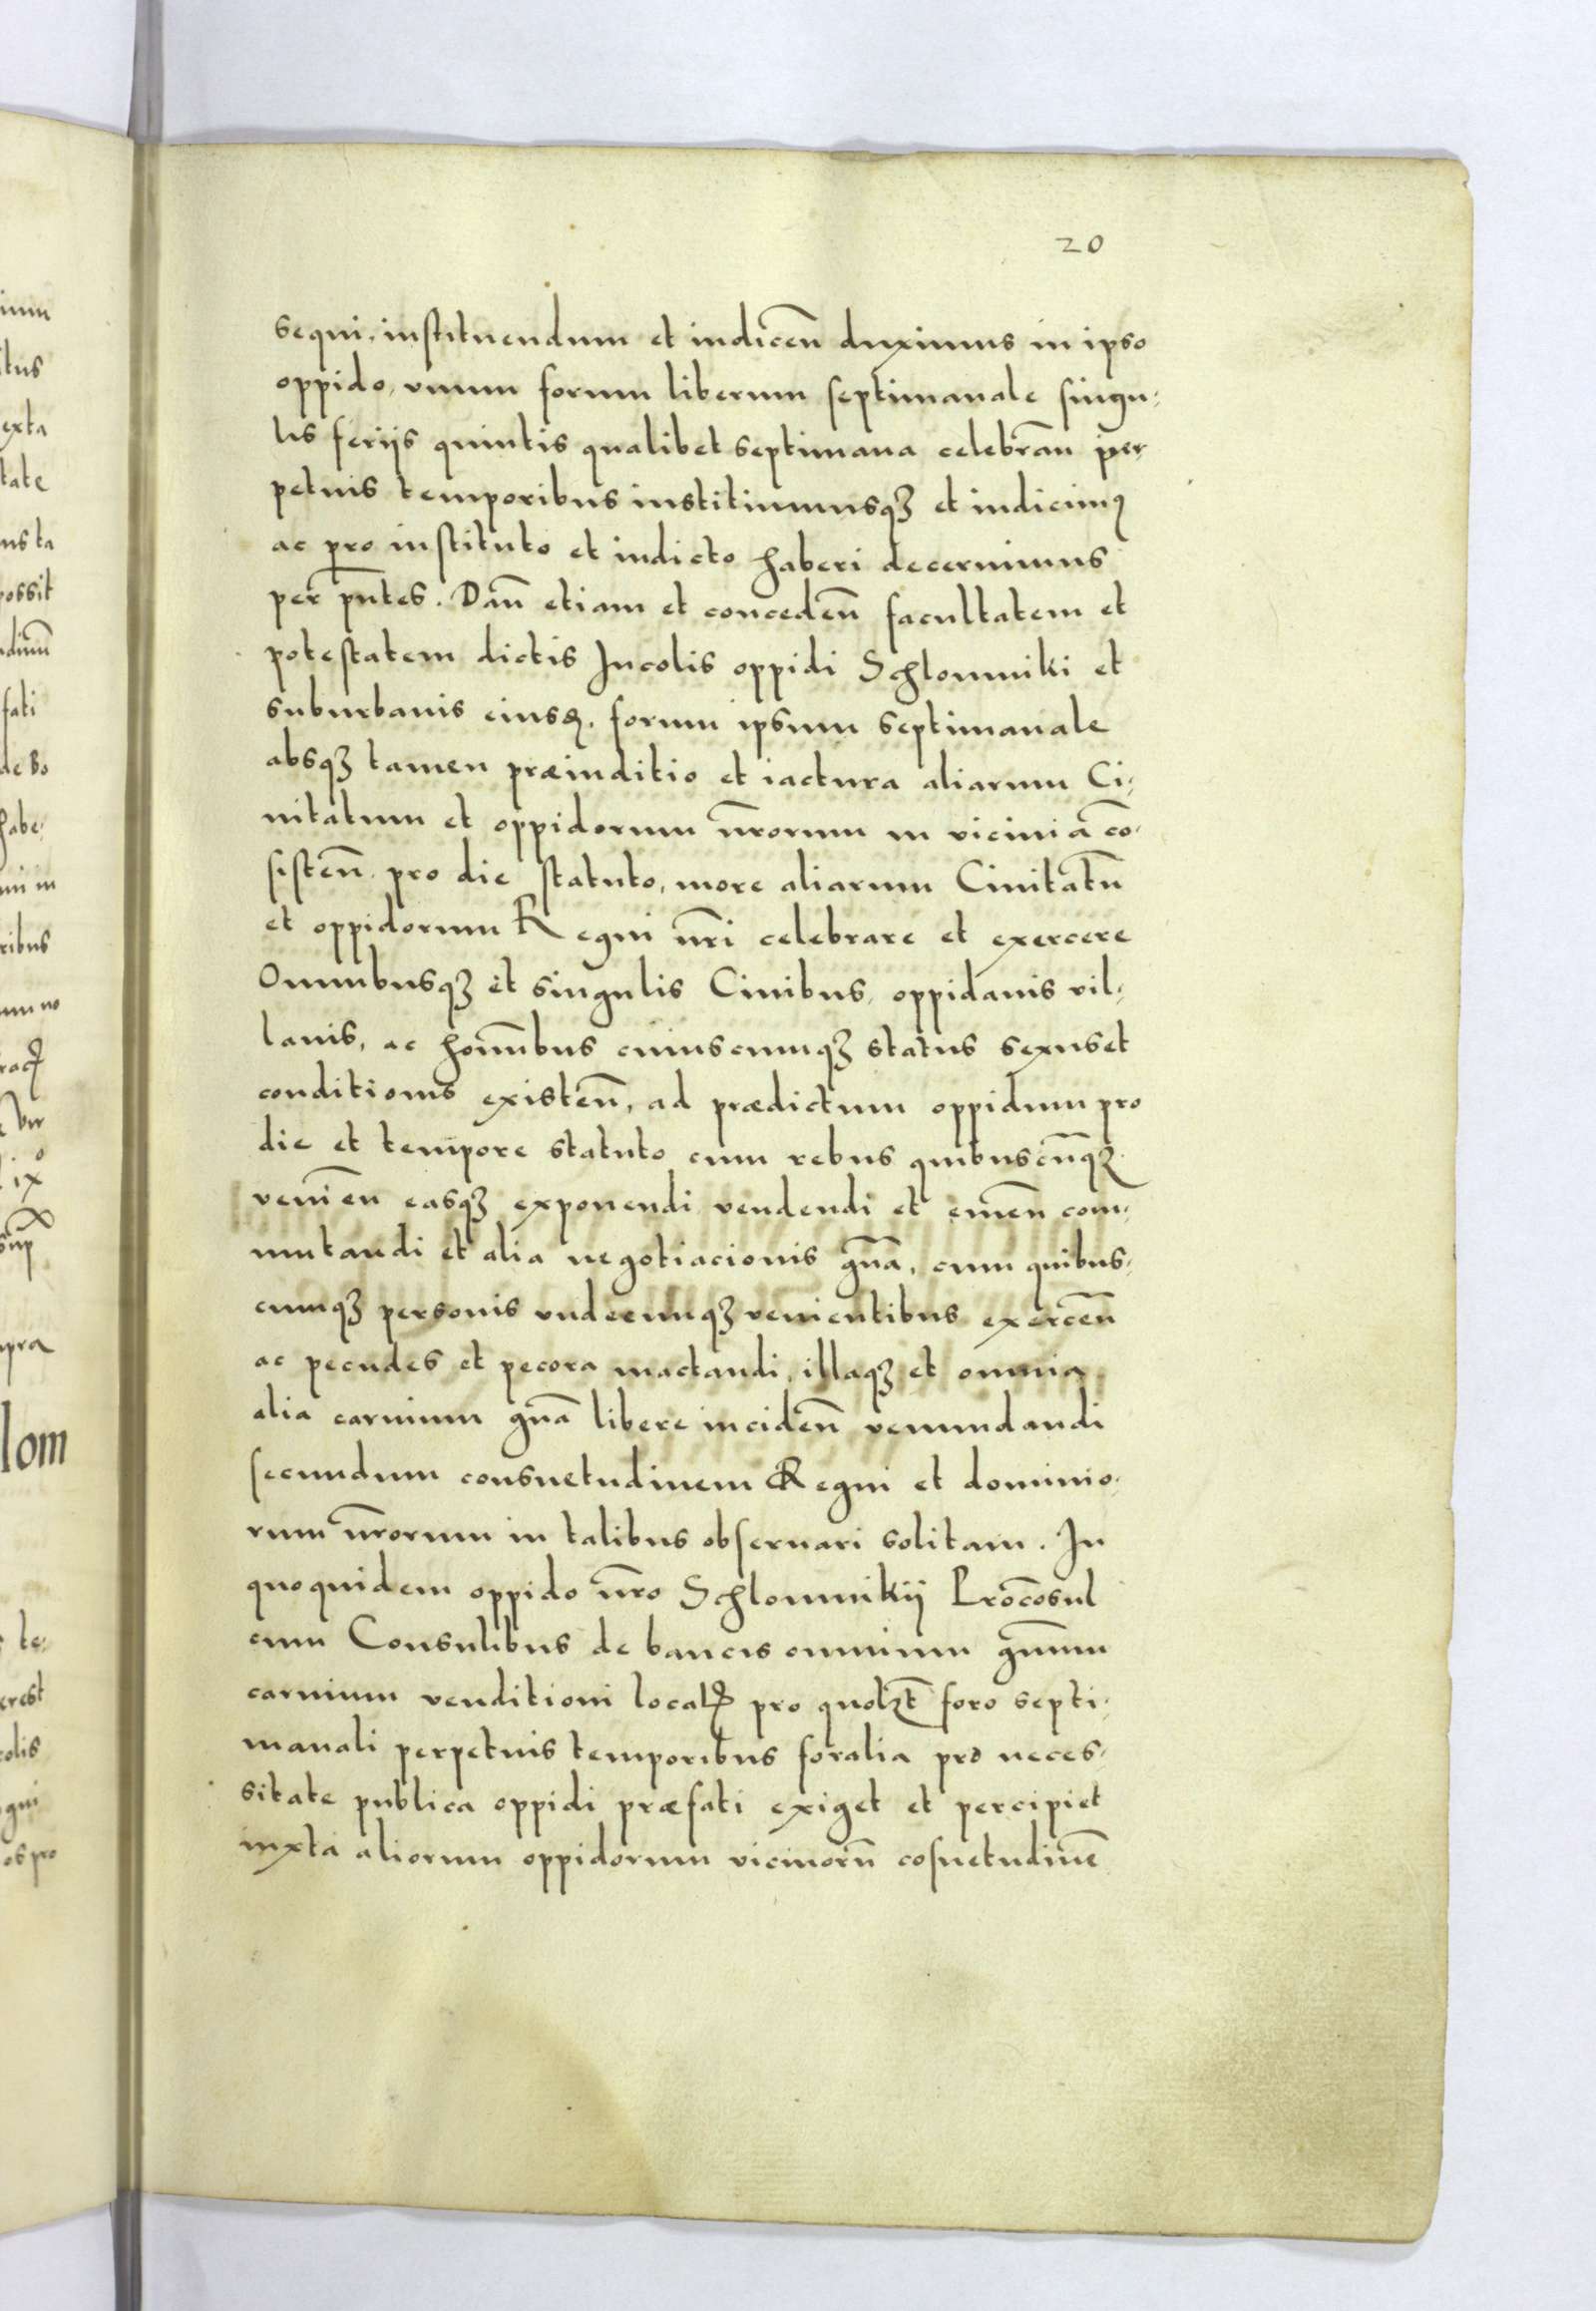 20
sequi, instituendum et indicen̄ duximus in ipso
oppido, vnum forum liberum septimanale singu-
lis ferijs quintis qualibet septimana celebran̄ per
petuis temporibus institiuimusqꝫ et indicimꝰ
ac pro instituto et indicto haberi decernimus
per pn̄tes. Dan̄ etiam et conceden̄ facultatem et
potestatem dictis Incolis oppidi Schlomniki et
suburbanis eiusꝗ. forum ipsum septimanale
absqꝫ tamen præiuditio et iactura aliarum Ci-
uitatum et oppidorum nr̄orum in vicinia cō-
sisten̄ pro die statuto, more aliarum Ciuitatū
et oppidorum Regni nr̄i celebrare et exercere
Omnibusqꝫ et singulis Ciuibus, oppidanis vil-
lanis, ac homībus cuiuscumqꝫ status sexus et
conditionis existen̄, ad prædictum oppidum pro
die et tempore statuto cum rebus quibuscūqꝫ
venīen easqꝫ exponendi vendendi et emēn com-
mutandi et alia negotiacionis gn̄a, cum quibus-
cumqꝫ personis vndecumqꝫ venientibus exercen̄
ac pecudes et pecora mactandi, illaqꝫ et omnia
alia carnium gn̄a libere inciden̄ venundandi
secundum consuetudinem Regni et dominio-
rum nr̄orum in talibus obseruari solitam. In
quoquidem oppido nr̄o Schlomnikij Procōsul
cum Consulibus de bancis omnium gn̄um
carnium venditioni locatꝭ pro quolꝫt foro septi-
manali perpetuis temporibus foralia pro neces-
sitate publica oppidi præfati exiget et percipiet
iuxta aliorum oppidorum vicinorū cōsuetudinē